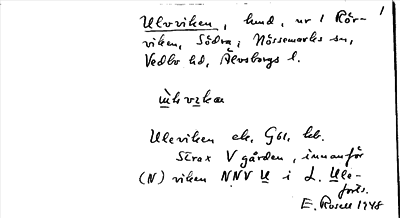 1
Ulvviken, hmd, nr 1 Rör-
viken, Södra; Nössemarks sn,
Vedbo hd, Älvsborgs l.
Uleviken ek. Gbl. kb.
Strax V gården, innanför
(N) viken NNV U i L. Ule-
forts.
E. Rosell 1948